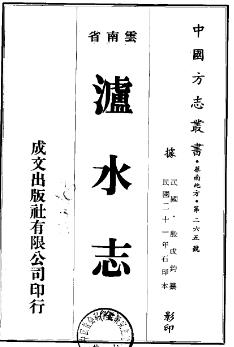 中國方志叢書・華南地方・第二六五號
據
民國・段承鈞纂
民國二十一年石印本
影印
雲南省
瀘水志
成文出版社有限公司印行